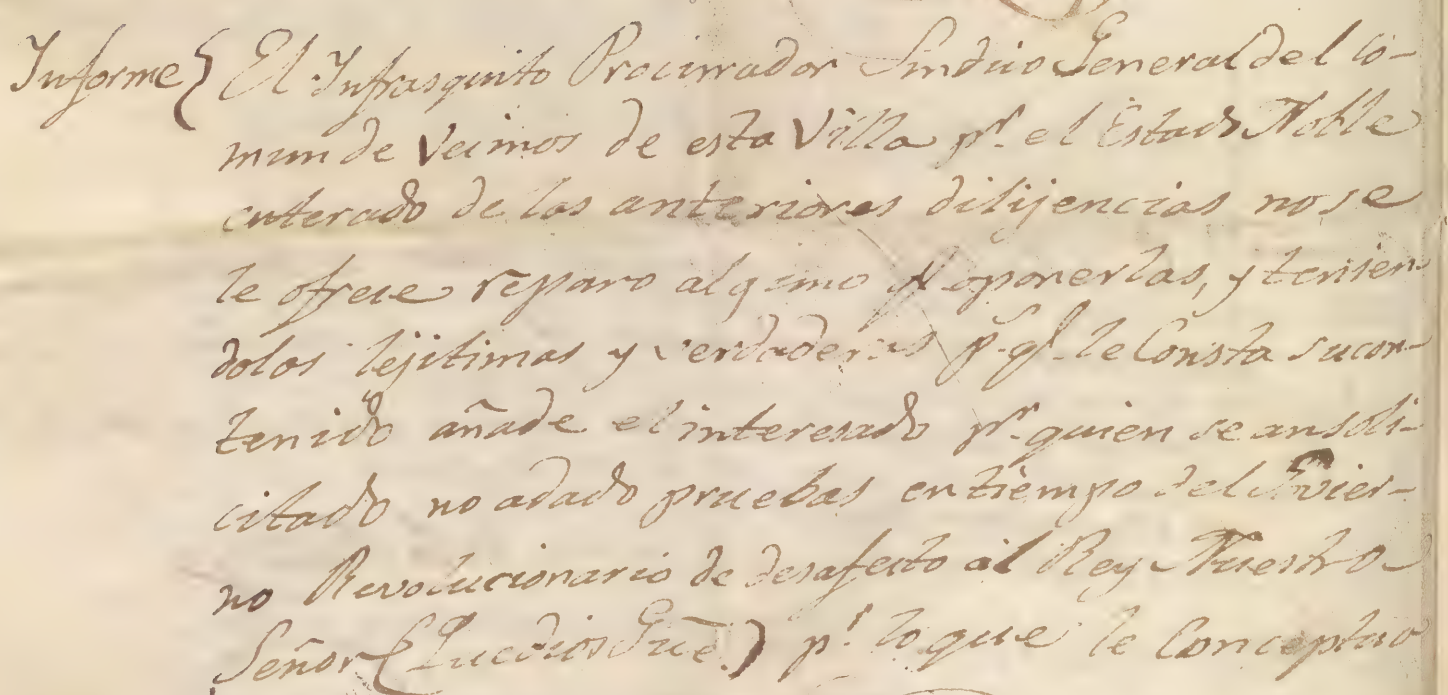 Informe { El Infrasquito Procurador Sindico General del Co-
mun de Vecinos de esta Villa pr. el Estado Noble
enterado de las anteriores dilijencias no se
le ofrece reparo alguno q oponerlas, y tenien-
dolas lejitimas y verdaderas p.q. le Consta su con-
tenido añade el interesado pr. quien se an soli-
citado no adado pruebas en tiempo del Govier-
no Revolucionario de desafecto al Rey Nuestro
Señor (Que Dios Gue.) pr. lo que le Conceptuo